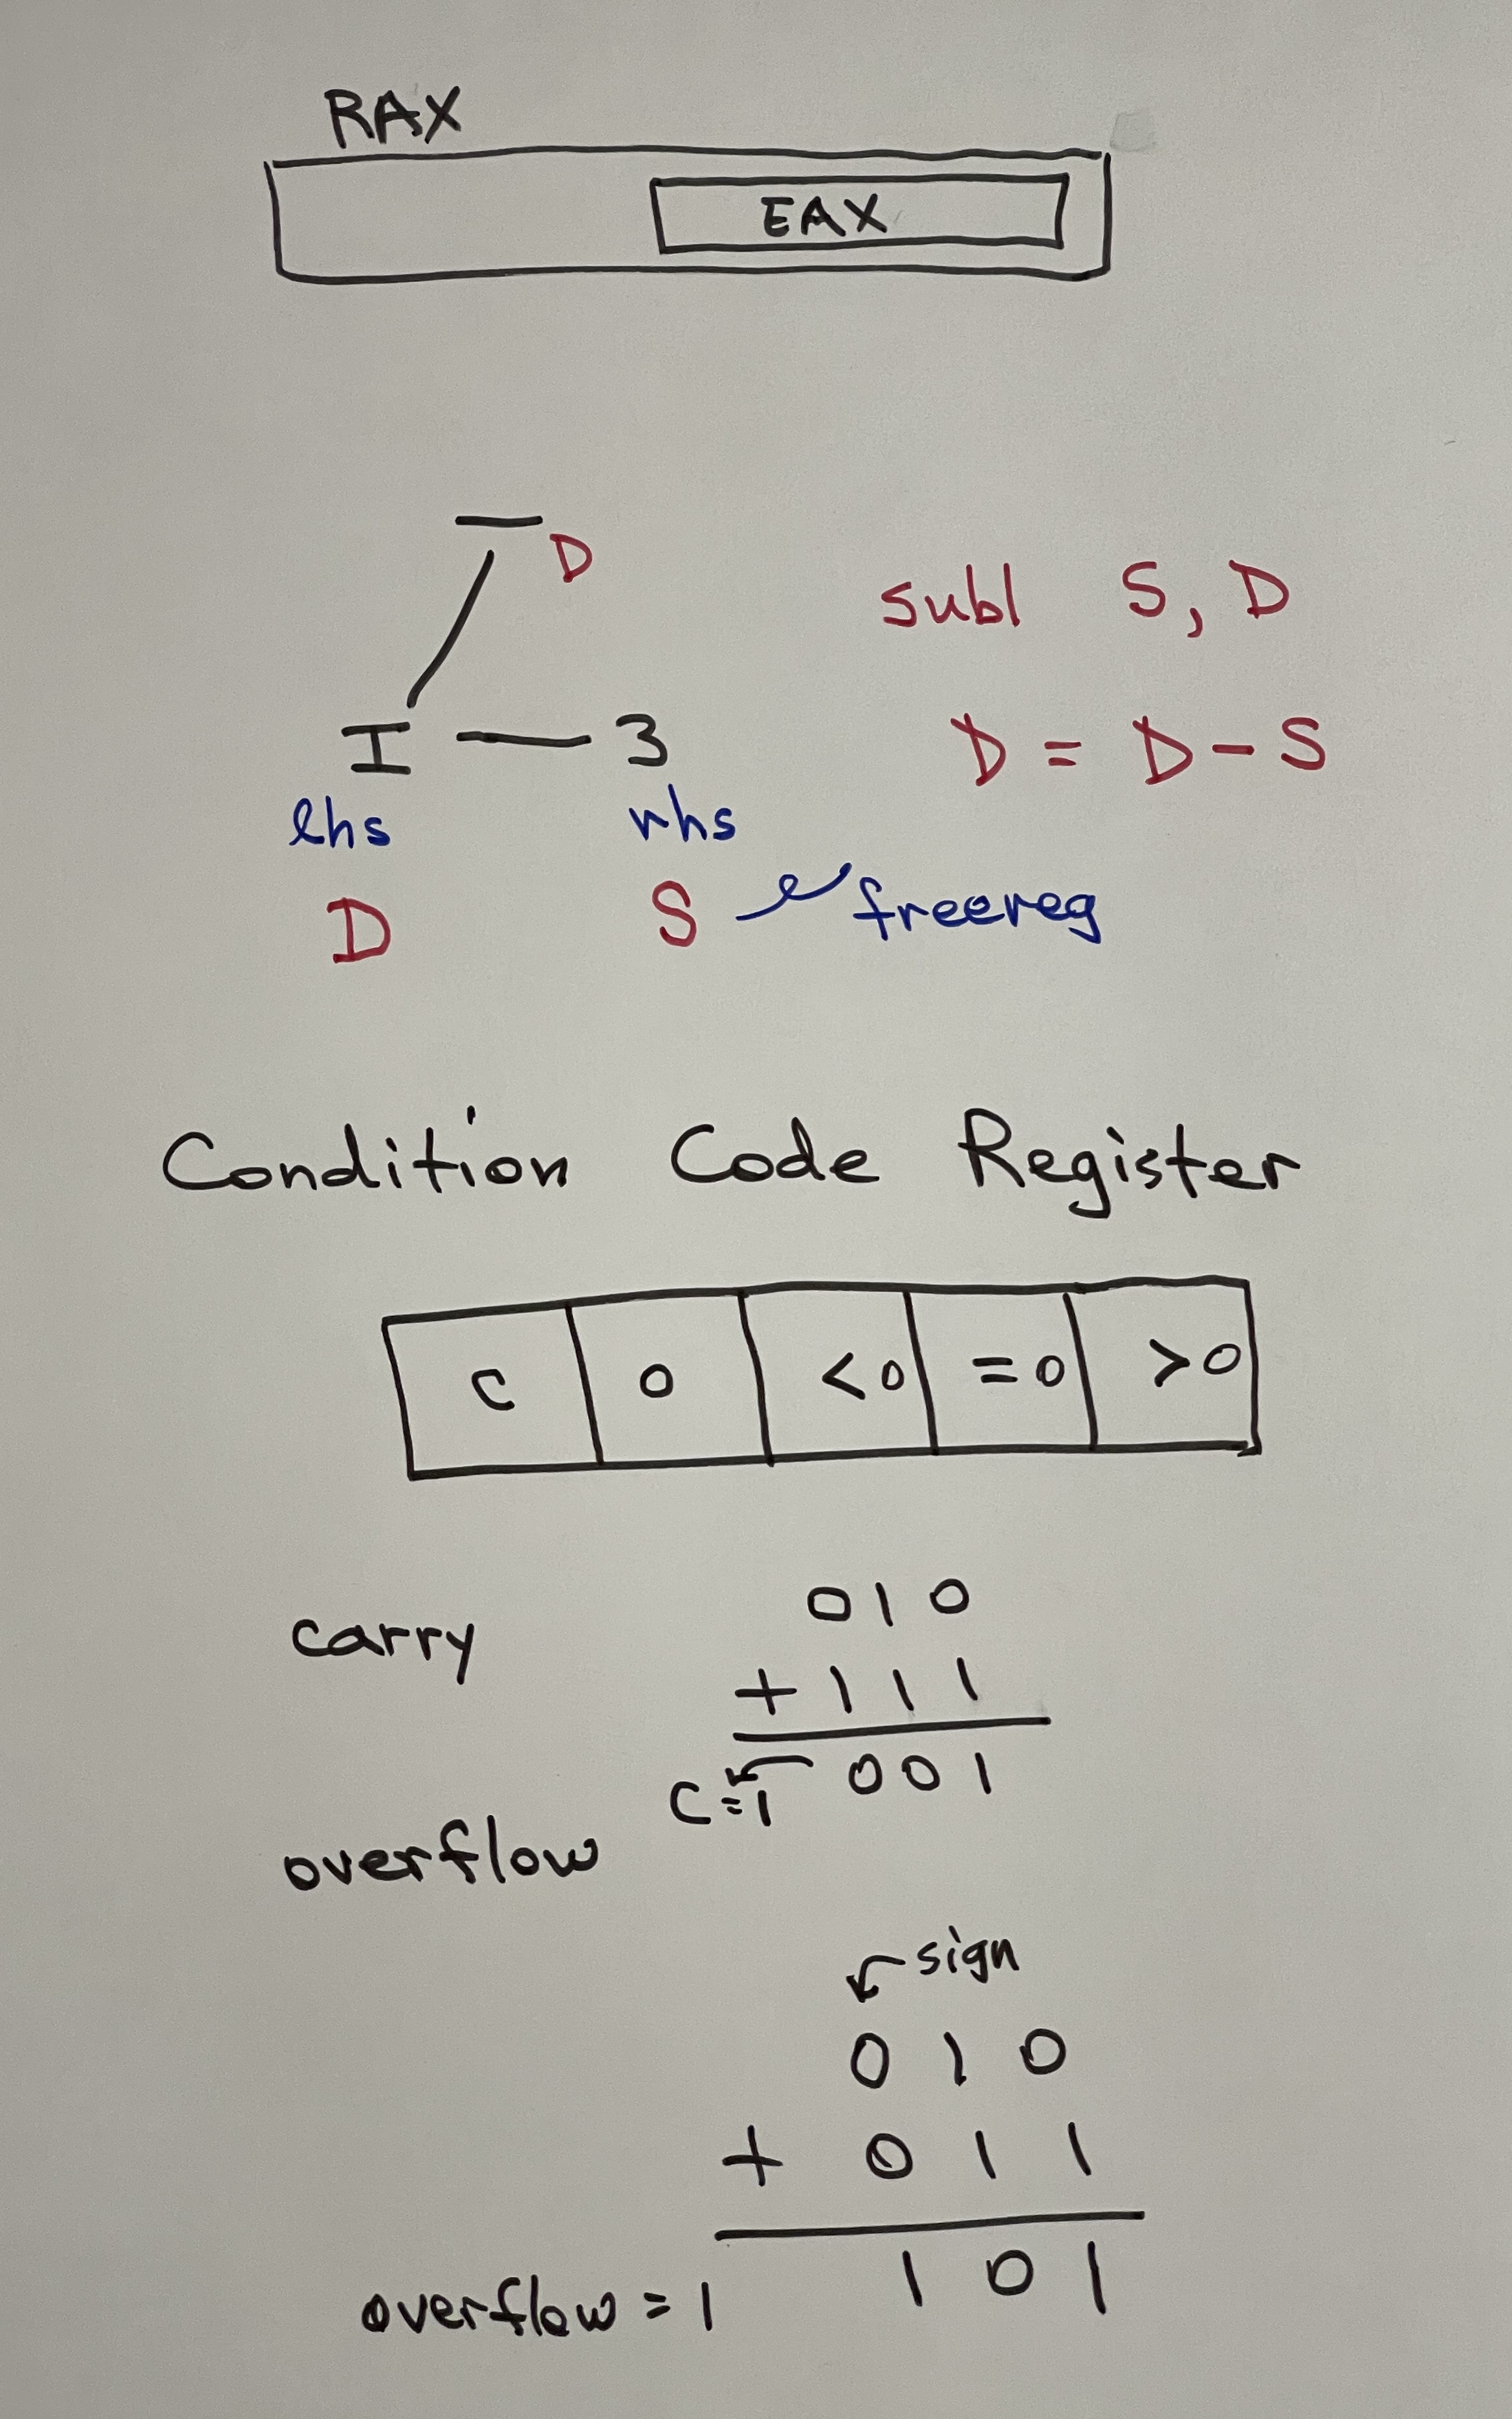 RAX
EAX
— D
subl S, D
I — 3
D = D - S
lhs rhs
D S freereg
Condition Code Register
C O <0 =0 >0
carry
010
+111
C=1 001
overflow
sign
010
+ 011
overflow = 1 101